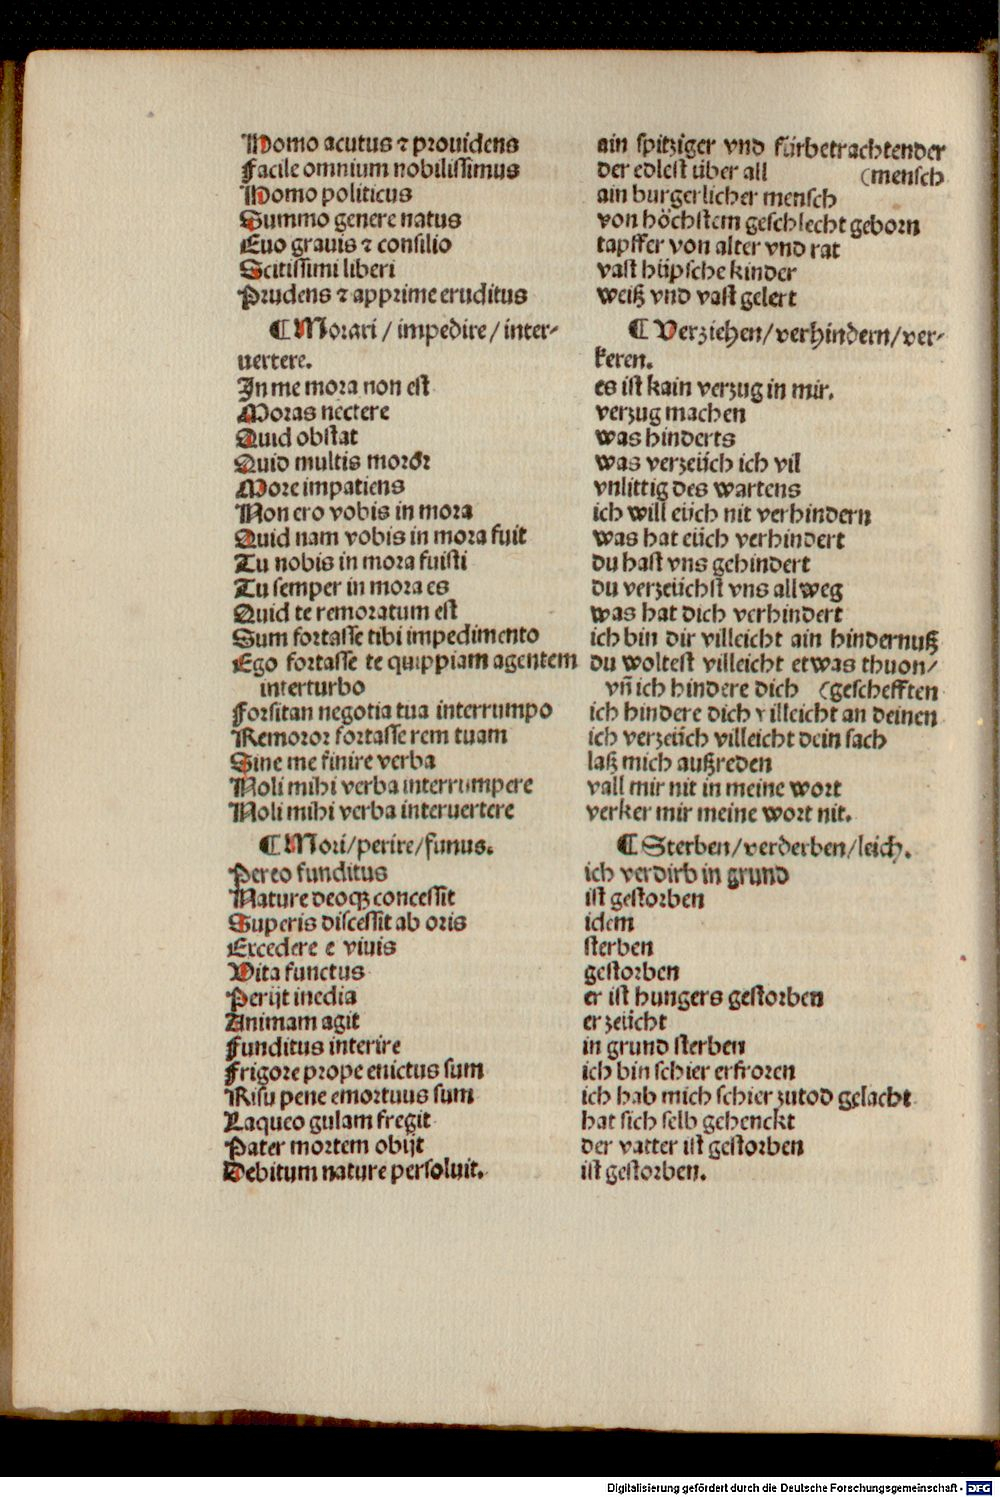 Homo acutus ⁊ prouidens
Facile omnium nobilissimus
Homo politicus
Summo genere natus
Euo grauis ⁊ consilio
Scitissimi liberi
Prudens ⁊ apprime eruditus
¶ Morari / impedire / inter-
uertere.
In me mora non est
Moras nectere
Quid obstat
Quid multis moror
More impatiens
Non ero vobis in mora
Quid nam vobis in mora fuit
Tu nobis in mora fuisti
Tu semper in mora es
Quid te remoratum est
Sum fortasse tibi impedimento
Ego fortasse te quippiam agentem
interturbo
Forsitan negotia tua interrumpo
Remoror fortasse rem tuam
Sine me finire verba
Noli mihi verba interrumpere
Noli mihi verba interuertere
¶ Mori/perire/funus.
Pereo funditus
Nature deoqꝫ concessit
Superis discessit ab oris
Excedere e viuis
Vita functus
Perijt inedia
Animam agit
Funditus interire
Frigore prope enictus sum
Risu pene emortuus sum
Laqueo gulam fregit
Pater mortem obijt
Debitum nature persoluit.
ain spitziger vnd fürbetrachtender
der edlest über all (mensch
ain burgerlicher mensch
von höchstem geschlecht geborn
tapffer von alter vnd rat
vast hüpsche kinder
weiß vnd vast gelert
¶ Verziehen/verhindern/ver-
keren.
es ist kain verzug in mir.
verzug machen
was hinderts
was verzeüch ich vil
vnlittig des wartens
ich will eüch nit verhindern
was hat eüch verhindert
du hast vns gehindert
du verzeüchst vns allweg
was hat dich verhindert
ich bin dir villeicht ain hindernuß
du woltest villeicht etwas thuon/
vñ ich hindere dich (geschefften
ich hindere dich villeicht an deinen
ich verzeüch villeicht dein sach
laß mich außreden
vall mir nit in meine wort
verker mir meine wort nit.
¶ Sterben/verderben/leich.
ich verdirb in grund
ist gestorben
idem
sterben
gestorben
er ist hungers gestorben
er zeücht
in grund sterben
ich bin schier erfroren
ich hab mich schier zutod gelacht
hat sich selb gehenckt
der vatter ist gestorben
ist gestorben.
Digitalisierung gefördert durch die Deutsche Forschungsgemeinschaft - DFG